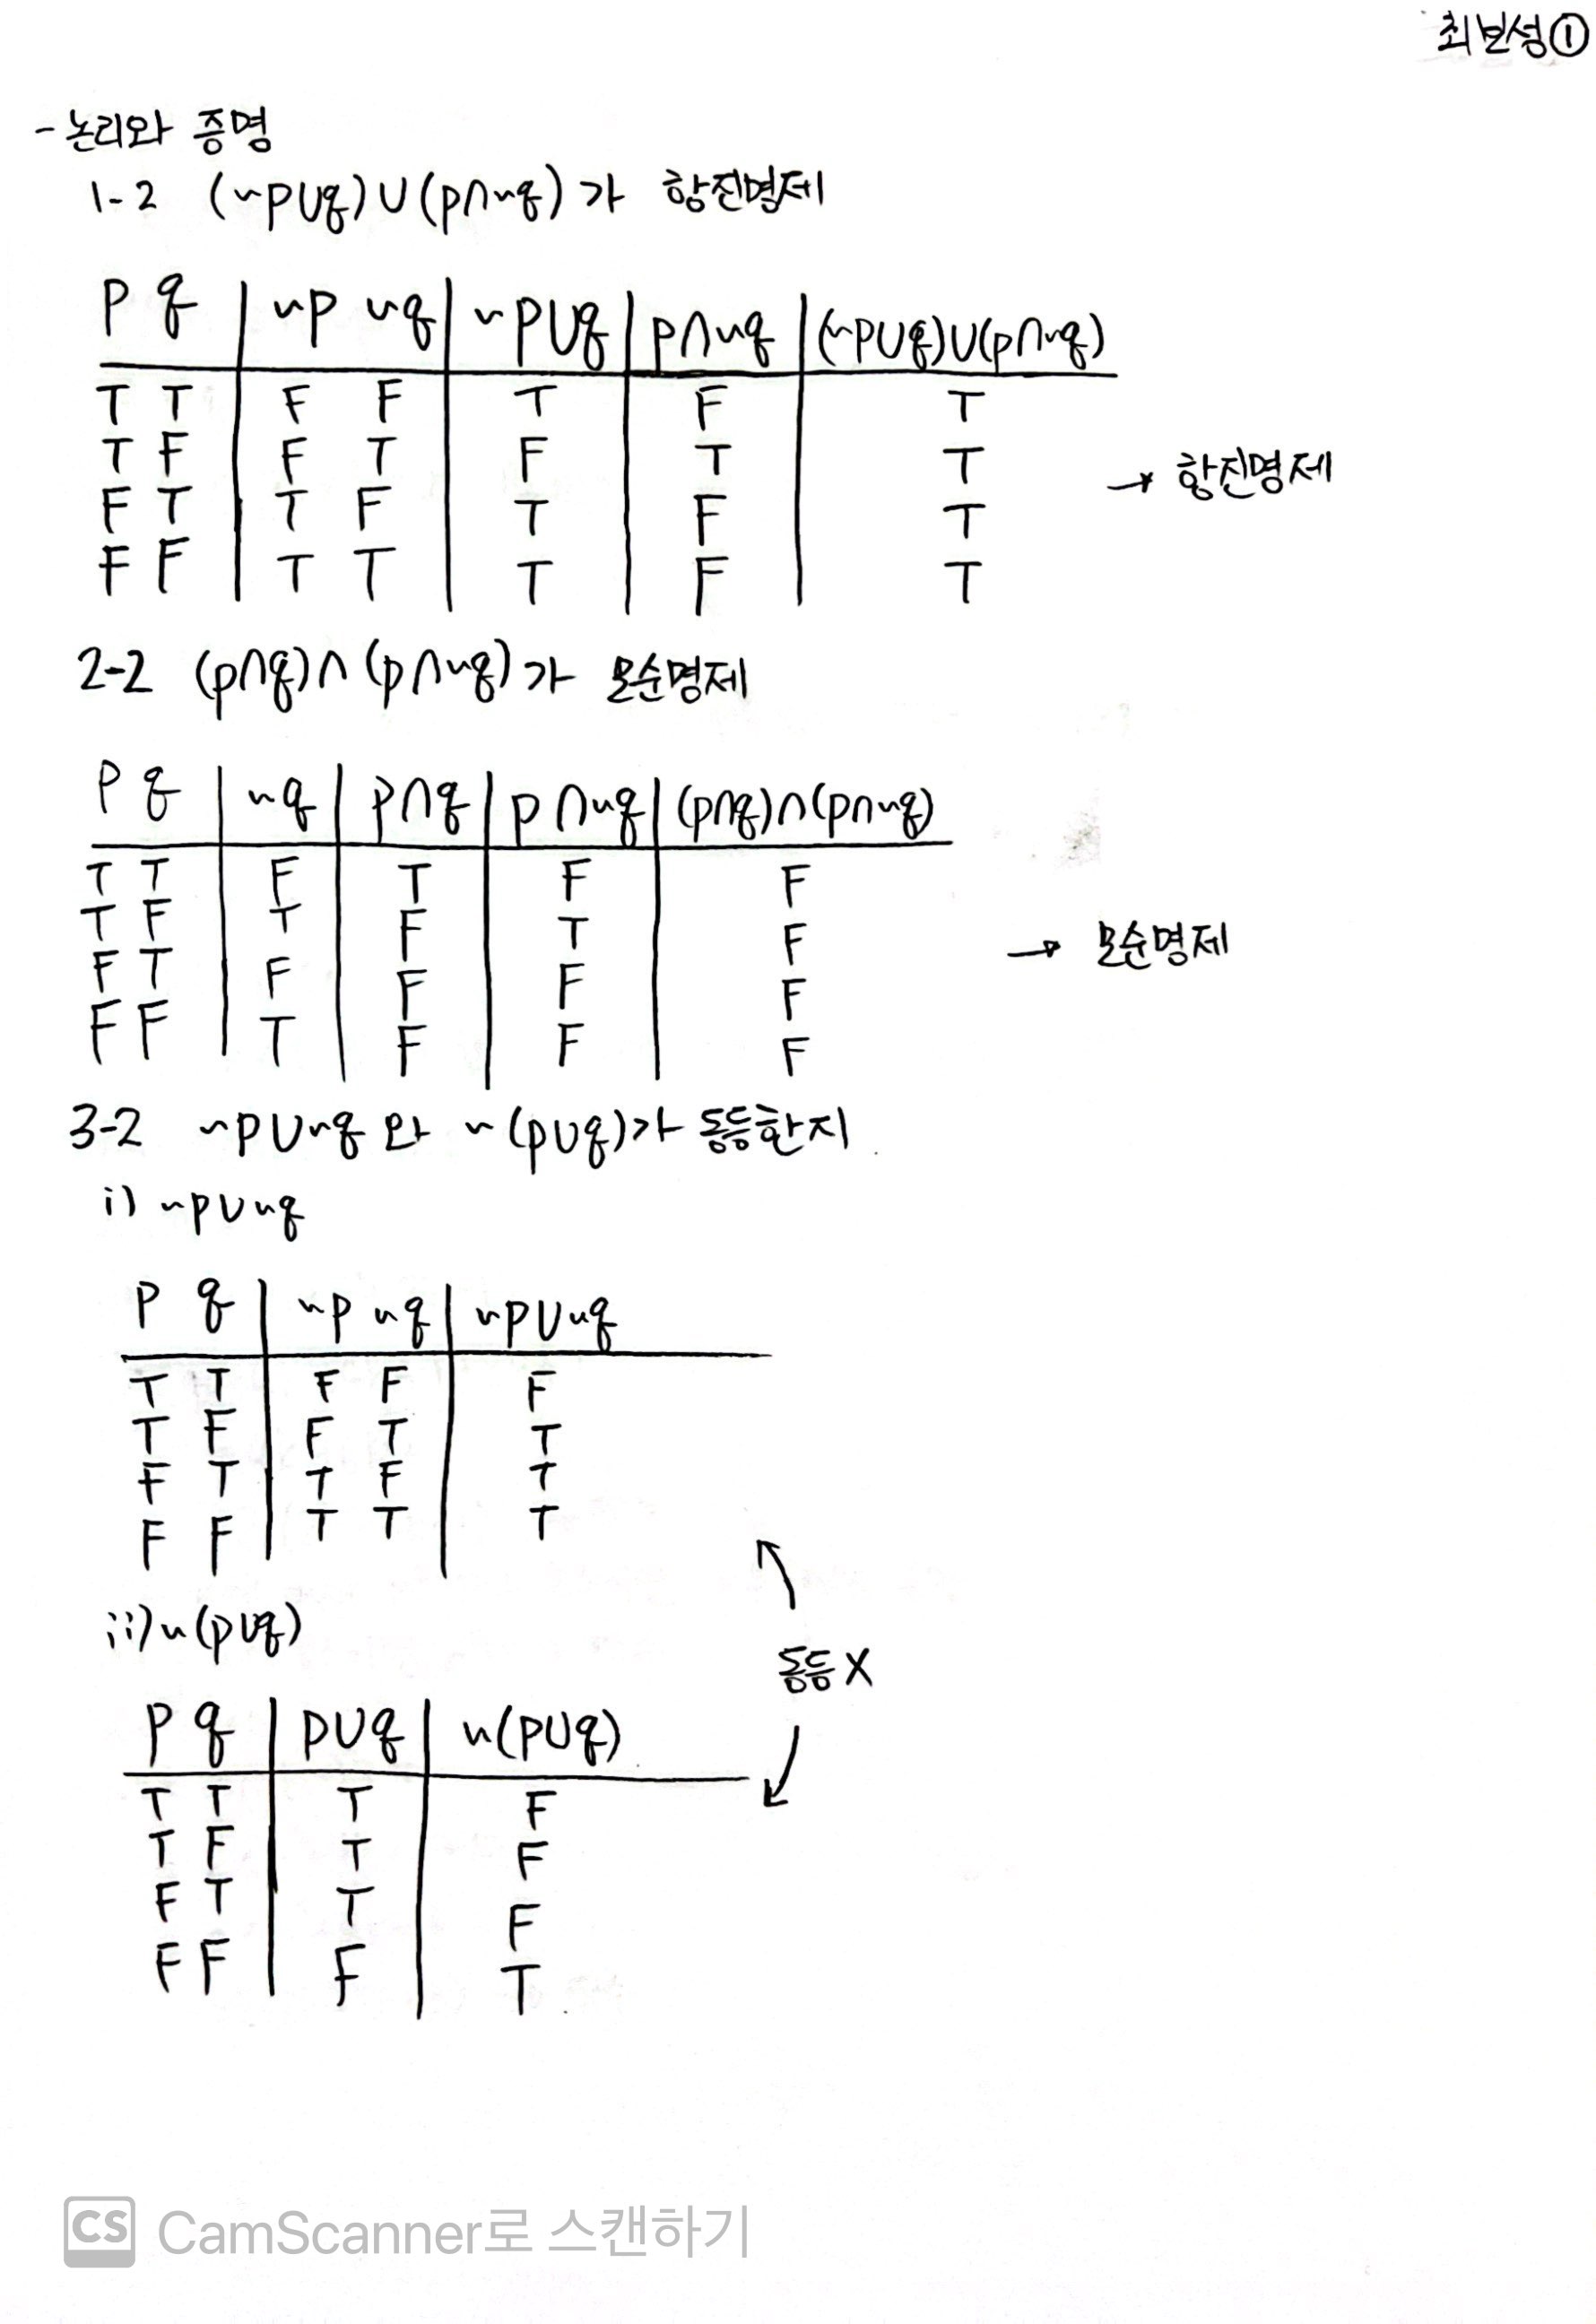 최보성①
-논리와 증명
1-2 (~p∪q)∪(p∩~q)가 항진명제
p q ~p ~q ~p∪q p∩~q (~p∪q)∪(p∩~q)
T T F F T F T
T F F T F T T
F T T F T F T
F F T T T F T
→ 항진명제
2-2 (p∩q)∩(p∩~q)가 모순명제
p q ~q p∩q p∩~q (p∩q)∩(p∩~q)
T T F T F F
T F T F T F
F T F F F F
F F T F F F
→ 모순명제
3-2 ~p∪~q 와 ~(p∪q)가 동등한지
i) ~p∪~q
p q ~p ~q ~p∪~q
T T F F F
T F F T T
F T T F T
F F T T T
동등X
ii) ~(p∪q)
p q p∪q ~(p∪q)
T T T F
T F T F
F T T F
F F F T
CS CamScanner로 스캔하기